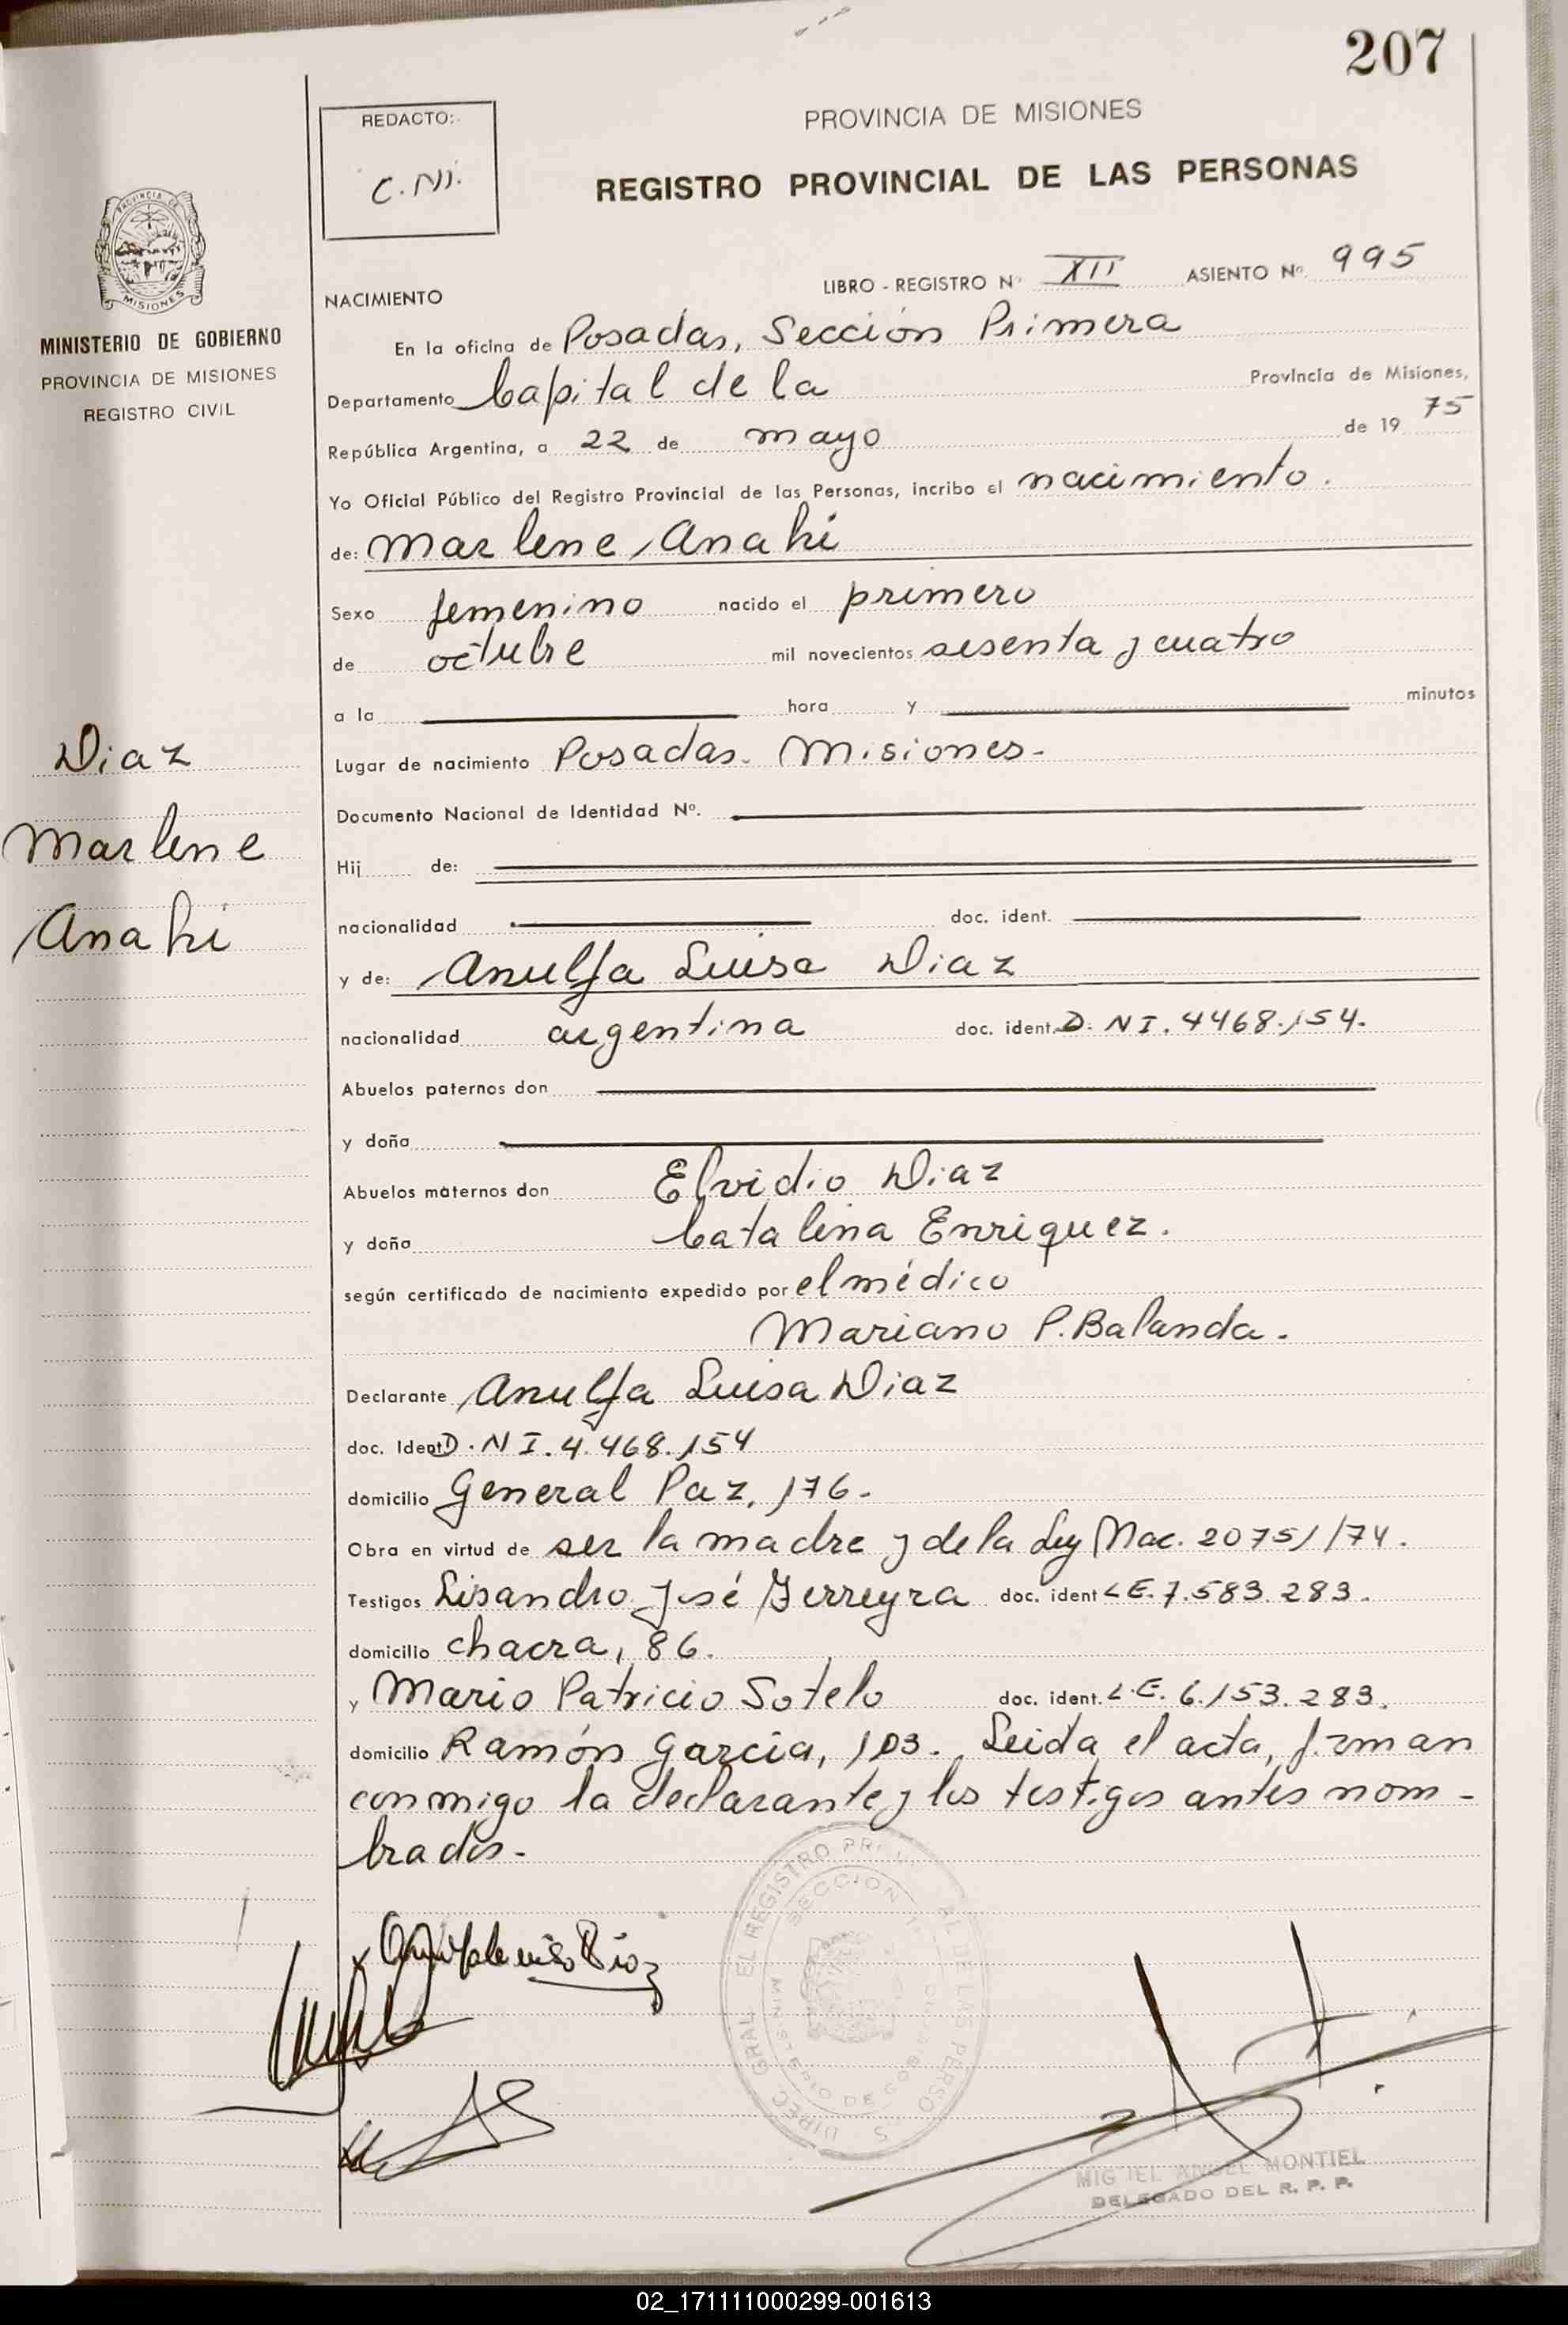 207
REDACTO:
C.NI.
PROVINCIA DE MISIONES
REGISTRO PROVINCIAL DE LAS PERSONAS
PROVINCIA DE
MISIONES
MINISTERIO DE GOBIERNO
PROVINCIA DE MISIONES
REGISTRO CIVIL
LIBRO - REGISTRO Nº XII ASIENTO Nº 995
NACIMIENTO
En la oficina de Posadas, Sección Primera
Departamento Capital de la Provincia de Misiones,
República Argentina, a 22 de mayo de 19 75
Yo Oficial Público del Registro Provincial de las Personas, incribo el nacimiento.
de: Marlene Anahi
Sexo femenino nacido el primero
de octubre mil novecientos sesenta y cuatro
a la hora y minutos
Lugar de nacimiento Posadas. Misiones-
Documento Nacional de Identidad Nº.
Hij de:
nacionalidad doc. ident.
y de: Anulfa Luisa Diaz
nacionalidad argentina doc. ident. D.NI.4468.154.
Abuelos paternos don
y doña
Abuelos maternos don Elvidio Diaz
y doña Catalina Enriquez.
según certificado de nacimiento expedido por el médico
Mariano P. Balanda.
Declarante Anulfa Luisa Diaz
doc. Ident D.NI.4.468.154
domicilio General Paz, 176.
Obra en virtud de ser la madre y de la Ley Nac. 20751/74.
Testigos Lisandro José Ferreyra doc. ident L.E. 7.583.283.
domicilio chacra, 86.
y Mario Patricio Sotelo doc. ident. L.E. 6.153.283.
domicilio Ramón Garcia, 103. Leida el acta, firman
conmigo la declarante y los testigos antes nom-
brados.
Diaz
Marlene
Anahi
MIGUEL ANGEL MONTIEL
DELEGADO DEL R. P. P.
02_171111000299-001613